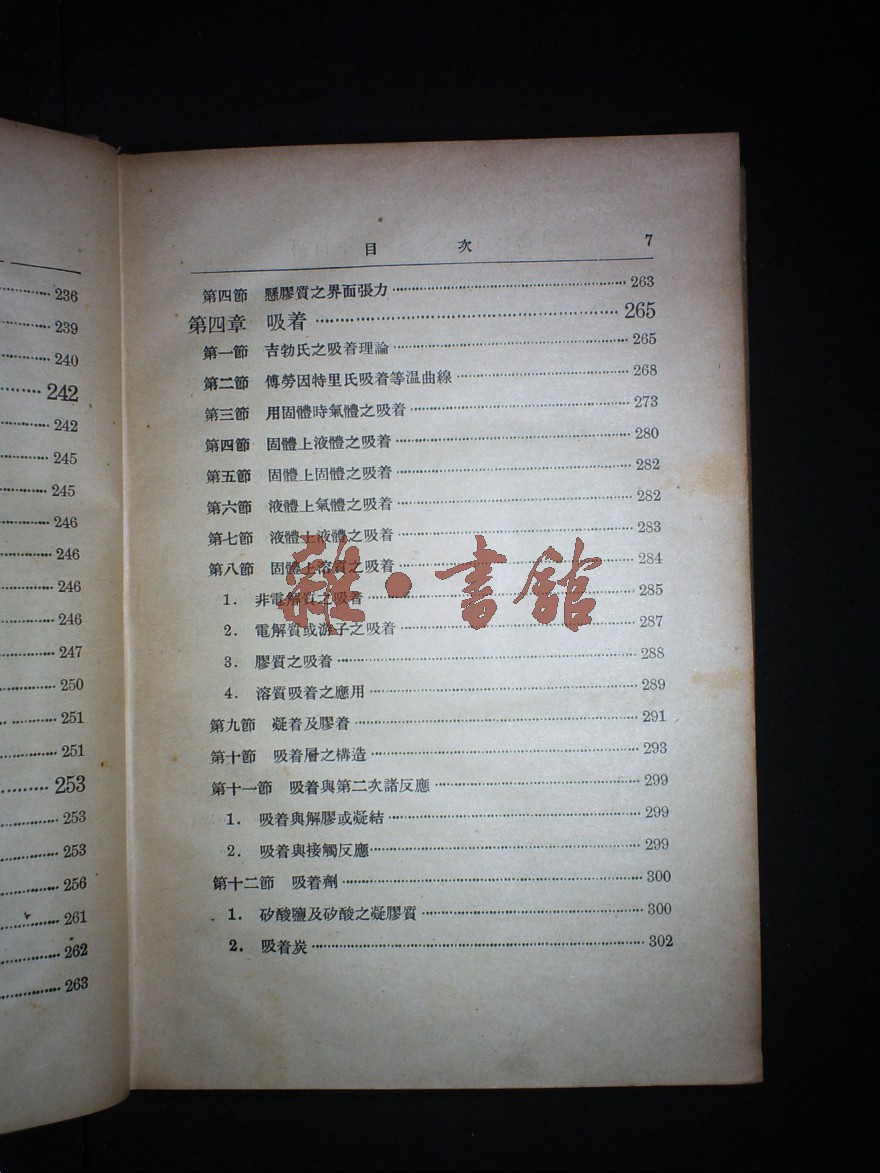 236
239
240
242
242
245
245
246
246
246
246
247
250
251
251
253
253
253
256
261
262
263
目 次 7
第四節 懸膠質之界面張力 263
第四章 吸着 265
第一節 吉勃氏之吸着理論 265
第二節 傅勞因特里氏吸着等温曲線 268
第三節 用固體時氣體之吸着 273
第四節 固體上液體之吸着 280
第五節 固體上固體之吸着 282
第六節 液體上氣體之吸着 282
第七節 液體上液體之吸着 283
第八節 固體上溶質之吸着 284
1. 非電解質之吸着 285
2. 電解質或游子之吸着 287
3. 膠質之吸着 288
4. 溶質吸着之應用 289
第九節 凝着及膠着 291
第十節 吸着層之構造 293
第十一節 吸着與第二次諸反應 299
1. 吸着與解膠或凝結 299
2. 吸着與接觸反應 299
第十二節 吸着劑 300
1. 矽酸鹽及矽酸之凝膠質 300
2. 吸着炭 302
雜·書舘